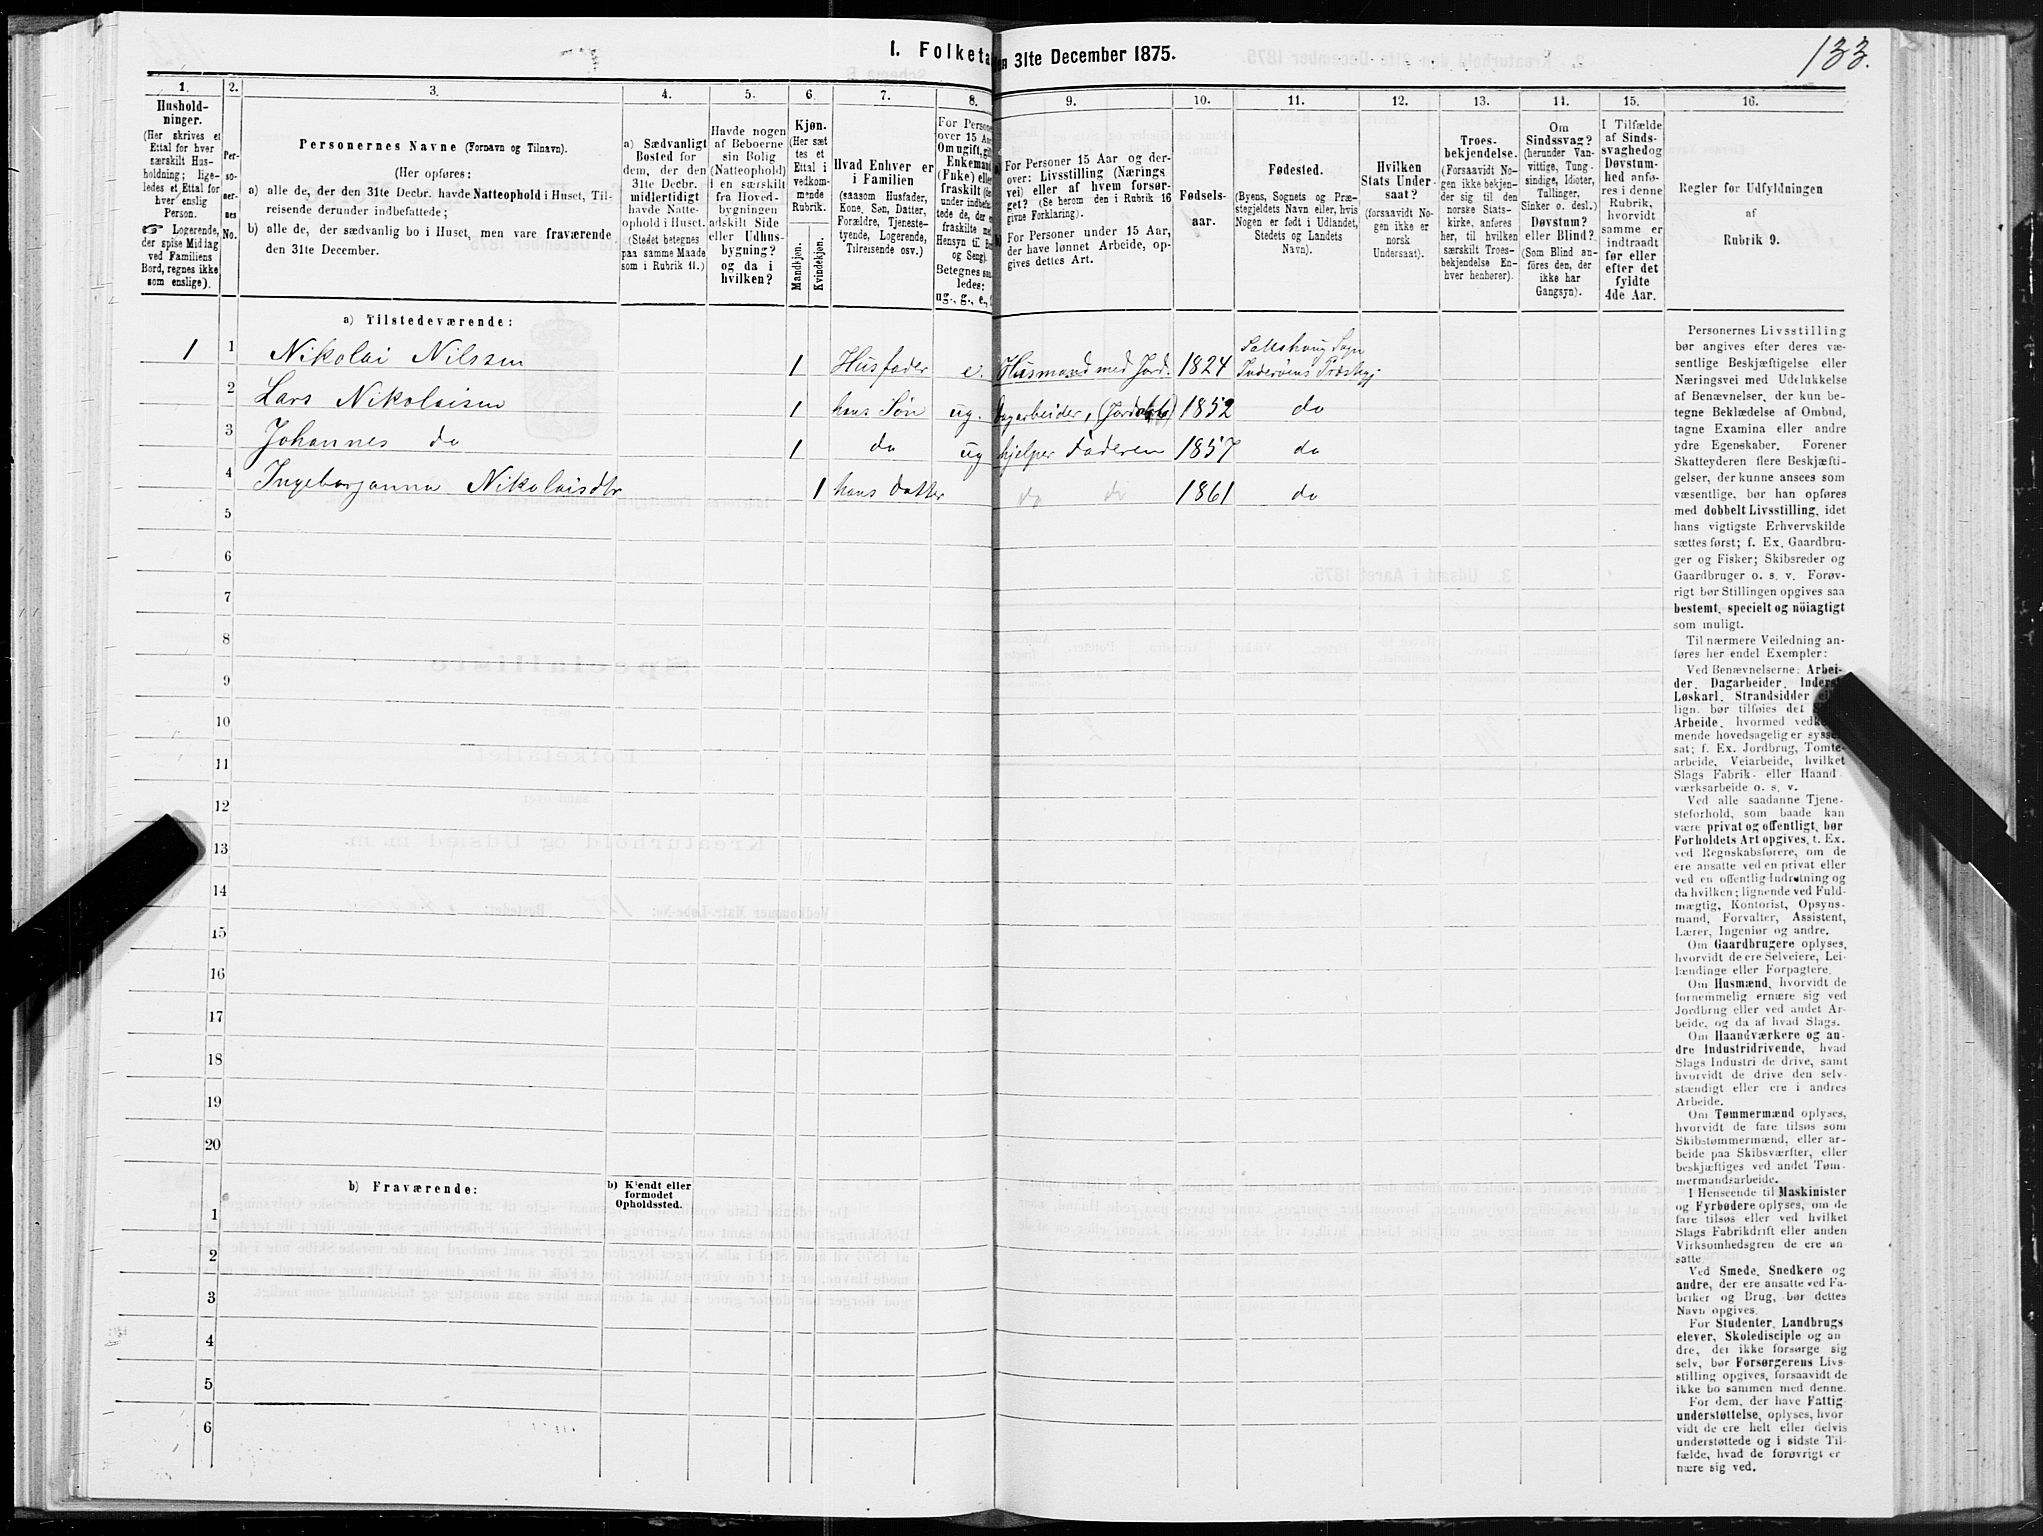 133.
I. Folketa en 31te December 1875.
1. 2. 3. 4. 5. 6. 7. 8. 9. 10. 11. 12. 13. 14. 15. 16.
Hushold-
ninger.
(Her skrives et
Ettal for hver
særskilt Hus-
holdning; lige-
ledes et Ettal for
hver enslig
Person.
☞ Logerende,
der spise Middag
ved Familiens
Bord, regnes ikke
som enslige).
Per-
so-
ner-
nes
No.
Personernes Navne (Fornavn og Tilnavn).
(Her opføres:
a) alle de, der den 31te Decbr. havde Natteophold i Huset, Til-
reisende derunder indbefattede;
b) alle de, der sædvanlig bo i Huset, men vare fraværende
den 31te December.
a) Sædvanligt
Bosted for
dem, der den
31te Decbr.
midlertidigt
havde Natte-
ophold i Huset.
(Stedet betegnes
paa samme Maade
som i Rubrik 11.)
Havde nogen
af Beboerne
sin Bolig
(Natteophold)
i en særskilt
fra Hoved-
bygningen
adskilt Side
eller Udhus-
bygning?
og da i
hvilken?
Kjøn.
(Her sæt
tes et
Ettal i
vedkom-
mende
Rubrik.
Mandkjøn.
Kvindekjøn.
Hvad Enhver er
i Familien
(saasom Husfader,
Kone, Søn, Datter,
Forældre, Tjeneste-
tyende, Logerende,
Tilreisende osv.)
For Persone
over 15 Aa
Om ugift, gif
Enkemand
(Enke) elle
fraskilt (
under indbefa
tede de, der e
fraskilte me
Hensyn til B
og Seng).
Betegnes saa
ledes:
ug., g., e.,
For Personer 15 Aar og der-
over: Livsstilling (Nærings
vei) eller af hvem forsør-
get? (Se herom den i Rubrik 16
givne Forklaring).
For Personer under 15 Aar,
der have lønnet Arbeide, op-
gives dettes Art.
Fødsels-
aar.
Fødested.
(Byens, Sognets og Præ-
stegjeldets Navn eller, hvis
Nogen er født i Udlandet,
Stedets og Landets
Navn).
Hvilken
Stats Under-
saat?
(forsaavidt No-
gen ikke er
norsk
Undersaat).
Troes-
bekjendelse.
(Forsaavidt No-
gen ikke bekjen-
der sig til den
norske Stats-
kirke, anføres
her, til hvilken
særskilt Troes-
bekjendelse En-
hver henhører).
Om
Sindssvag?
(herunder Van-
vittige, Tung-
sindige, Idioter,
Tullinger,
Sinker o. desl.)
Døvstum?
eller Blind?
(Som Blind an-
føres den, der
ikke har
Gangsyn).
I Tilfælde
af Sinds-
svaghed og
Døvstum-
hed anfø-
res i denne
Rubrik,
hvorvidt
samme er
indtraadt
før eller
efter det
fyldte
4de Aar.
Regler for Udfyldningen
af
Rubrik 9.
a) Tilstedeværende:
1 1 Nikolai Nilssen 1 Husfader e. Husmand med Jord. 1824 Salberg Sogn Inderøens Præstegj
2 Lars Nikolaisen 1 hans Søn ug. Dagarbeider, 1852 do
3 Johannes do 1 do ug hjelper Faderen 1857 do
4 Ingeborganna Nikolaisdtr 1 hans Datter do do 1861 do
5
6
7
8
9
10
11
12
13
14
15
16
17
18
19
20
b) Fraværende:
b) Kjendt eller
formodet
Opholdssted.
1
2
3
4
5
6
Personernes Livsstilling
bør angives efter deres væ-
sentlige Beskjæftigelse eller
Næringsvei med Udelukkelse
af Benævnelser, der kun be-
tegne Beklædelse af Ombud,
tagne Examina eller andre
ydre Egenskaber. Forener
Skatteyderen flere Beskjæfti-
gelser, der kunne ansees som
væsentlige, bør han opføres
med dobbelt Livsstilling, idet
hans vigtigste Erhvervskilde
sættes først; f. Ex. Gaardbru-
ger og Fisker; Skibsreder og
Gaardbruger o. s. v. Forøv-
rigt bør Stillingen opgives saa
bestemt, specielt og nöiagtigt
som muligt.
Til nærmere Veiledning an-
føres her endel Exempler:
Ved Benævnelserne: Arbei-
der, Dagarbeider, Inders
Løskarl, Strandsidder el
lign. bør tilføies det S
Arbeide, hvormed vedk
mende hovedsagelig er sysse
sat; f. Ex. Jordbrug, Tomte-
arbeide, Veiarbeide, hvilket
Slags Fabrik- eller Haand
værksarbeide o. s. v.
Ved alle saadanne Tjene-
steforhold, som baade kan
være privat og offentligt, bør
Forholdets Art opgives, f. Ex.
ved Regnskabsførere, om de
ere ansatte ved en privat eller
ved en offentlig Indretning og
da hvilken; lignende ved Fuld-
mægtig, Kontorist, Opsyns-
mand, Forvalter, Assistent,
Lærer, Ingeniør og andre.
Om Gaardbrugere oplyses,
hvorvidt de ere Selveiere, Lei-
lændinge eller Forpagtere.
Om Husmænd, hvorvidt de
fornemmelig ernære sig ved
Jordbrug eller ved andet Ar-
beide, og da af hvad Slags.
Om Haandværkere og an-
dre Industridrivende, hvad
Slags Industri de drive, samt
hvorvidt de drive den selv-
stændigt eller ere i andres
Arbeide.
Om Tømmermænd oplyses,
hvorvidt de fare tilsøs som
Skibstømmermænd, eller ar-
beide paa Skibsværfter, eller
beskjæftiges ved andet Tøm-
mermandsarbeide.
I Henseende til Maskinister
og Fyrbødere oplyses, om de
fare tilsøs eller ved hvilket
Slags Fabrikdrift eller anden
Virksomhedsgren de ere an-
satte.
Ved Smede, Snedkere og
andre, der ere ansatte ved Fa-
briker og Brug, bør dettes
Navn opgives.
For Studenter, Landbrugs
elever, Skoledisciple og an
dre, der ikke forsørge sig
selv, bør Forsørgerens Livs-
stilling opgives, forsaavidt de
ikke bo sammen med denne.
For dem, der have Fattig
understøttelse, oplyses, hvor
vidt de ere helt eller delvis
understøttede og i sidste Til-
fælde, hvad de forøvrigt er
nære sig ved.